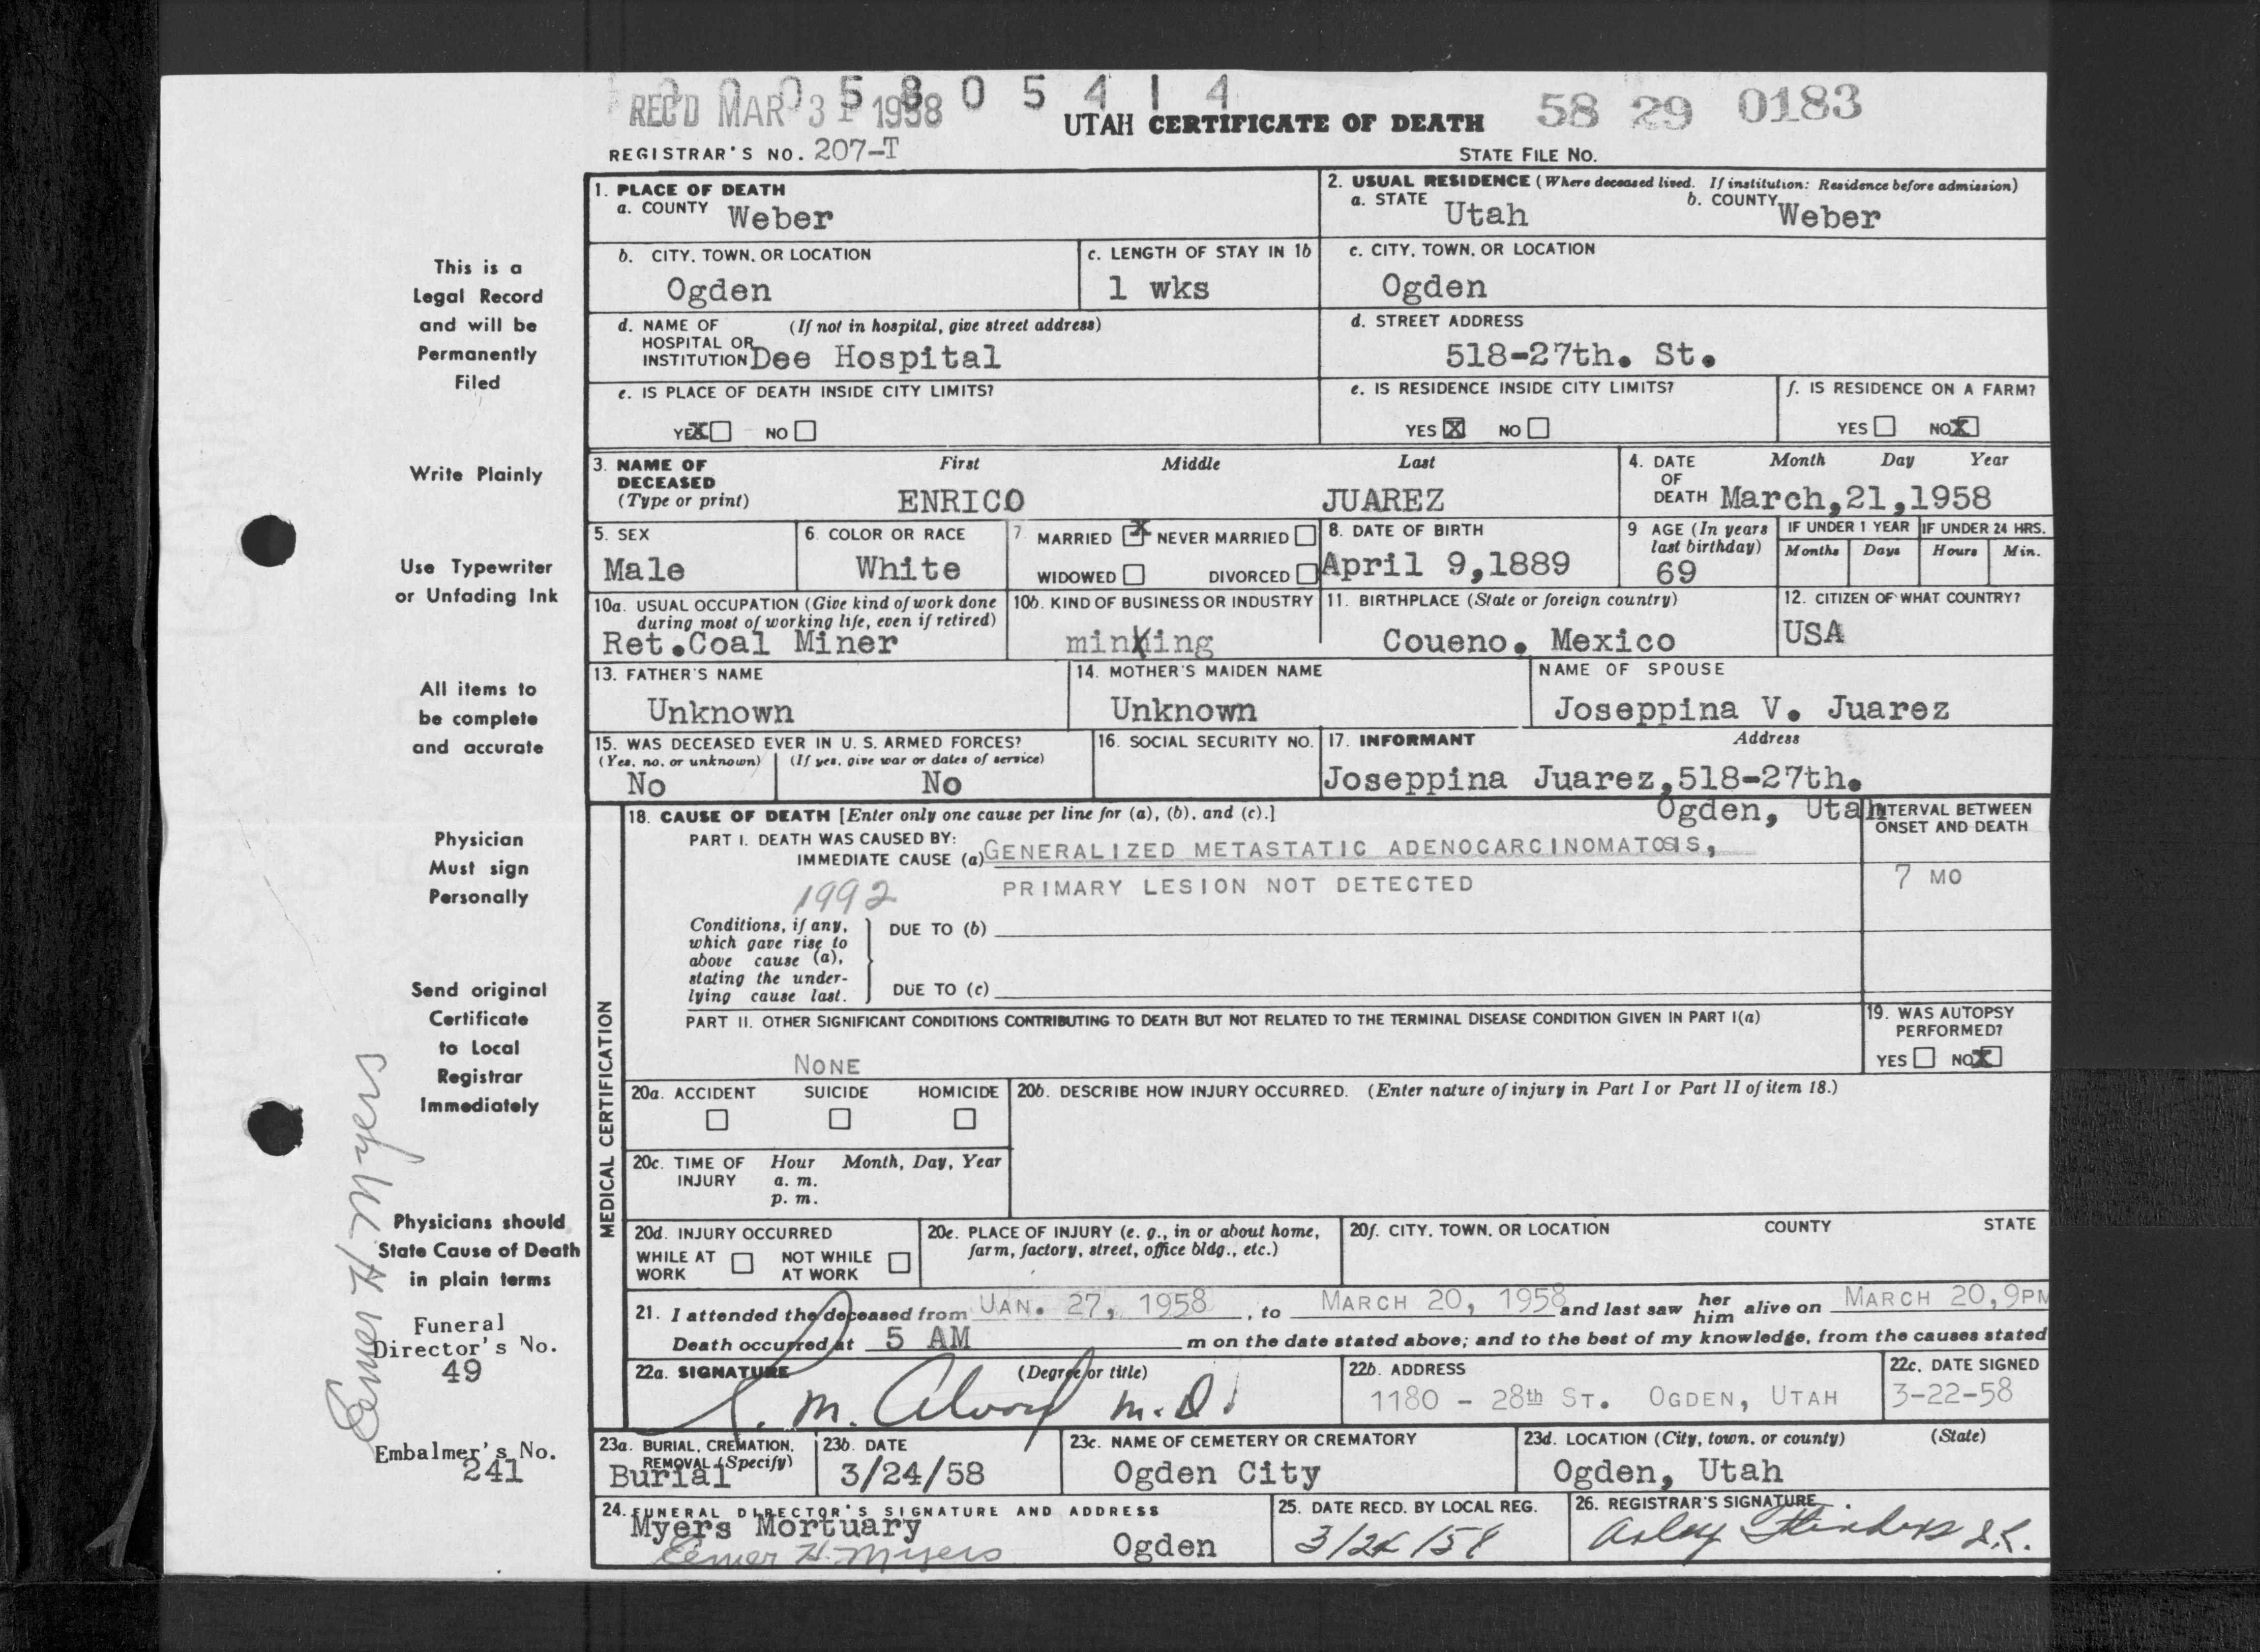 0 0 0 5 8 0 5 4 1 4
REC'D MAR 31 1958
UTAH CERTIFICATE OF DEATH
58 29 0183
REGISTRAR'S NO. 207-T
STATE FILE NO.
1. PLACE OF DEATH
a. COUNTY Weber
2. USUAL RESIDENCE (Where deceased lived. If institution: Residence before admission)
a. STATE Utah b. COUNTY Weber
b. CITY, TOWN, OR LOCATION
Ogden
c. LENGTH OF STAY IN 1b
1 wks
c. CITY, TOWN, OR LOCATION
Ogden
d. NAME OF (If not in hospital, give street address)
HOSPITAL OR
INSTITUTION Dee Hospital
d. STREET ADDRESS
518-27th. St.
e. IS PLACE OF DEATH INSIDE CITY LIMITS?
YES X NO
e. IS RESIDENCE INSIDE CITY LIMITS?
YES X NO
f. IS RESIDENCE ON A FARM?
YES NO X
3. NAME OF DECEASED (Type or print)
First Middle Last
ENRICO JUAREZ
4. DATE OF DEATH
Month Day Year
March,21,1958
5. SEX
Male
6. COLOR OR RACE
White
7. MARRIED X NEVER MARRIED
WIDOWED DIVORCED
8. DATE OF BIRTH
April 9,1889
9 AGE (In years last birthday)
69
IF UNDER 1 YEAR
Months Days
IF UNDER 24 HRS.
Hours Min.
10a. USUAL OCCUPATION (Give kind of work done
during most of working life, even if retired)
Ret.Coal Miner
10b. KIND OF BUSINESS OR INDUSTRY
minXing
11. BIRTHPLACE (State or foreign country)
Coueno. Mexico
12. CITIZEN OF WHAT COUNTRY?
USA
13. FATHER'S NAME
Unknown
14. MOTHER'S MAIDEN NAME
Unknown
NAME OF SPOUSE
Joseppina V. Juarez
15. WAS DECEASED EVER IN U. S. ARMED FORCES?
(Yes, no, or unknown) (If yes, give war or dates of service)
No No
16. SOCIAL SECURITY NO.
17. INFORMANT Address
Joseppina Juarez,518-27th.
Ogden, Utah
18. CAUSE OF DEATH [Enter only one cause per line for (a), (b), and (c).]
INTERVAL BETWEEN
ONSET AND DEATH
PART I. DEATH WAS CAUSED BY:
IMMEDIATE CAUSE (a) GENERALIZED METASTATIC ADENOCARCINOMATOSIS,
1992 PRIMARY LESION NOT DETECTED
7 MO
Conditions, if any,
which gave rise to
above cause (a),
stating the under-
lying cause last.
DUE TO (b)
DUE TO (c)
PART II. OTHER SIGNIFICANT CONDITIONS CONTRIBUTING TO DEATH BUT NOT RELATED TO THE TERMINAL DISEASE CONDITION GIVEN IN PART I(a)
NONE
19. WAS AUTOPSY
PERFORMED?
YES NO X
MEDICAL CERTIFICATION
20a. ACCIDENT SUICIDE HOMICIDE
20b. DESCRIBE HOW INJURY OCCURRED. (Enter nature of injury in Part I or Part II of item 18.)
20c. TIME OF INJURY
Hour Month, Day, Year
a. m.
p. m.
20d. INJURY OCCURRED
WHILE AT WORK
NOT WHILE AT WORK
20e. PLACE OF INJURY (e. g., in or about home,
farm, factory, street, office bldg., etc.)
20f. CITY, TOWN, OR LOCATION COUNTY STATE
21. I attended the deceased from JAN. 27, 1958, to MARCH 20, 1958 and last saw her him alive on MARCH 20, 9PM
Death occurred at 5 AM m on the date stated above; and to the best of my knowledge, from the causes stated
22a. SIGNATURE (Degree or title)
M. Alvord M.D.
22b. ADDRESS
1180 - 28th ST. OGDEN, UTAH
22c. DATE SIGNED
3-22-58
23a. BURIAL, CREMATION,
REMOVAL (Specify)
Burial
23b. DATE
3/24/58
23c. NAME OF CEMETERY OR CREMATORY
Ogden City
23d. LOCATION (City, town, or county) (State)
Ogden, Utah
24. FUNERAL DIRECTOR'S SIGNATURE AND ADDRESS
Myers Mortuary
Elmer H. Myers Ogden
25. DATE RECD. BY LOCAL REG.
3/24/58
26. REGISTRAR'S SIGNATURE
This is a
Legal Record
and will be
Permanently
Filed
Write Plainly
Use Typewriter
or Unfading Ink
All items to
be complete
and accurate
Physician
Must sign
Personally
Send original
Certificate
to Local
Registrar
Immediately
Physicians should
State Cause of Death
in plain terms
Funeral
Director's No.
49
Embalmer's No.
241
Elmer H Myers